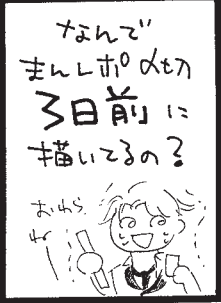 なんで
まんレポ〆切
3日前に
描いてるの?
おわら
ねー